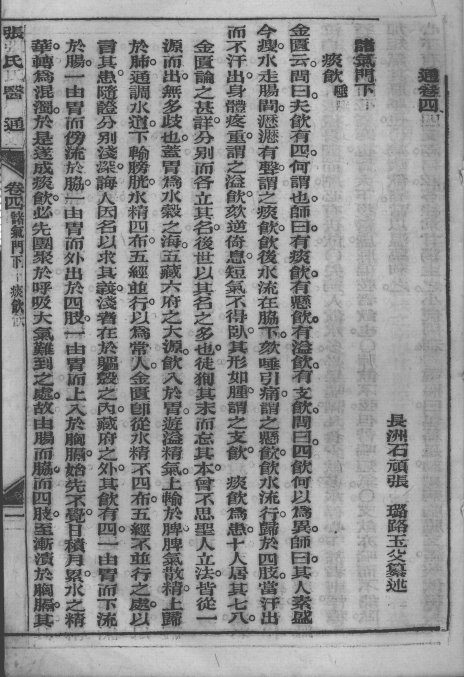 通卷四
諸氣門下
痰飲
長洲石頑張 璐路玉父纂述
金匱云問曰夫飲有四何謂也師曰有痰飲有懸飲有溢飲有支飲問曰四飲何以為異師曰其人素盛
今瘦水走腸間瀝瀝有聲謂之痰飲飲後水流在脇下欬唾引痛謂之懸飲飲水流行歸於四肢當汗出
而不汗出身體疼重謂之溢飲欬逆倚息短氣不得臥其形如腫謂之支飲 痰飲為患十人居其七八
金匱論之甚詳分別而各立其名後世以其名之多也徒徇其末而忘其本曾不思聖人立法皆從一
源而出無多歧也蓋胃為水穀之海五藏六府之大源飲入於胃遊溢精氣上輸於脾脾氣散精上歸
於肺通調水道下輸膀胱水精四布五經並行以為常人金匱即從水精不四布五經不並行之處以
言其患隨證分別淺深誨人因名以求其義淺者在於軀殼之內藏府之外其飲有四一由胃而下流
於腸一由胃而傍流於脇一由胃而外出於四肢一由胃而上入於胸膈始先不覺日積月累水之精
華轉為混濁於是遂成痰飲必先團聚於呼吸大氣難到之處故由腸而脇而四肢至漸漬於胸膈其
張氏醫通
卷四諸氣門下
痰飲